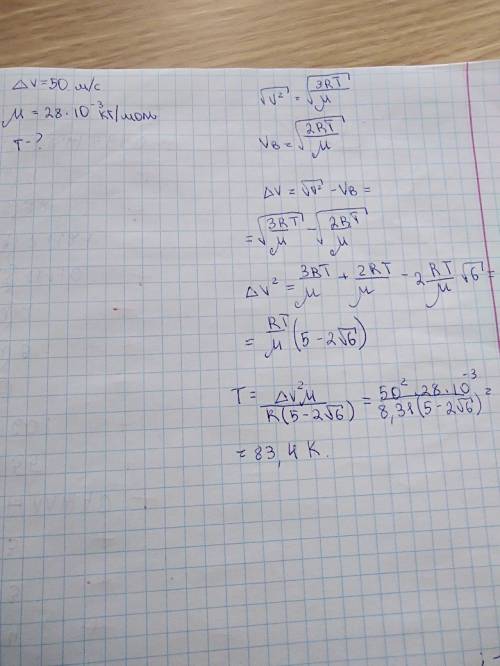 ΔV = 50 м/с
μ = 28 · 10⁻³ кг/моль
T - ?
√V² = √(3RT/μ)
Vв = √(2RT/μ)
ΔV = √V² - Vв =
= √(3RT/μ) - √(2RT/μ)
ΔV² = 3RT/μ + 2RT/μ - 2 RT/μ √6 =
= RT/μ (5 - 2√6)
T = ΔV²μ / R(5 - 2√6) = 50² · 28 · 10⁻³ / 8,31(5 - 2√6) =
= 83,4 K.